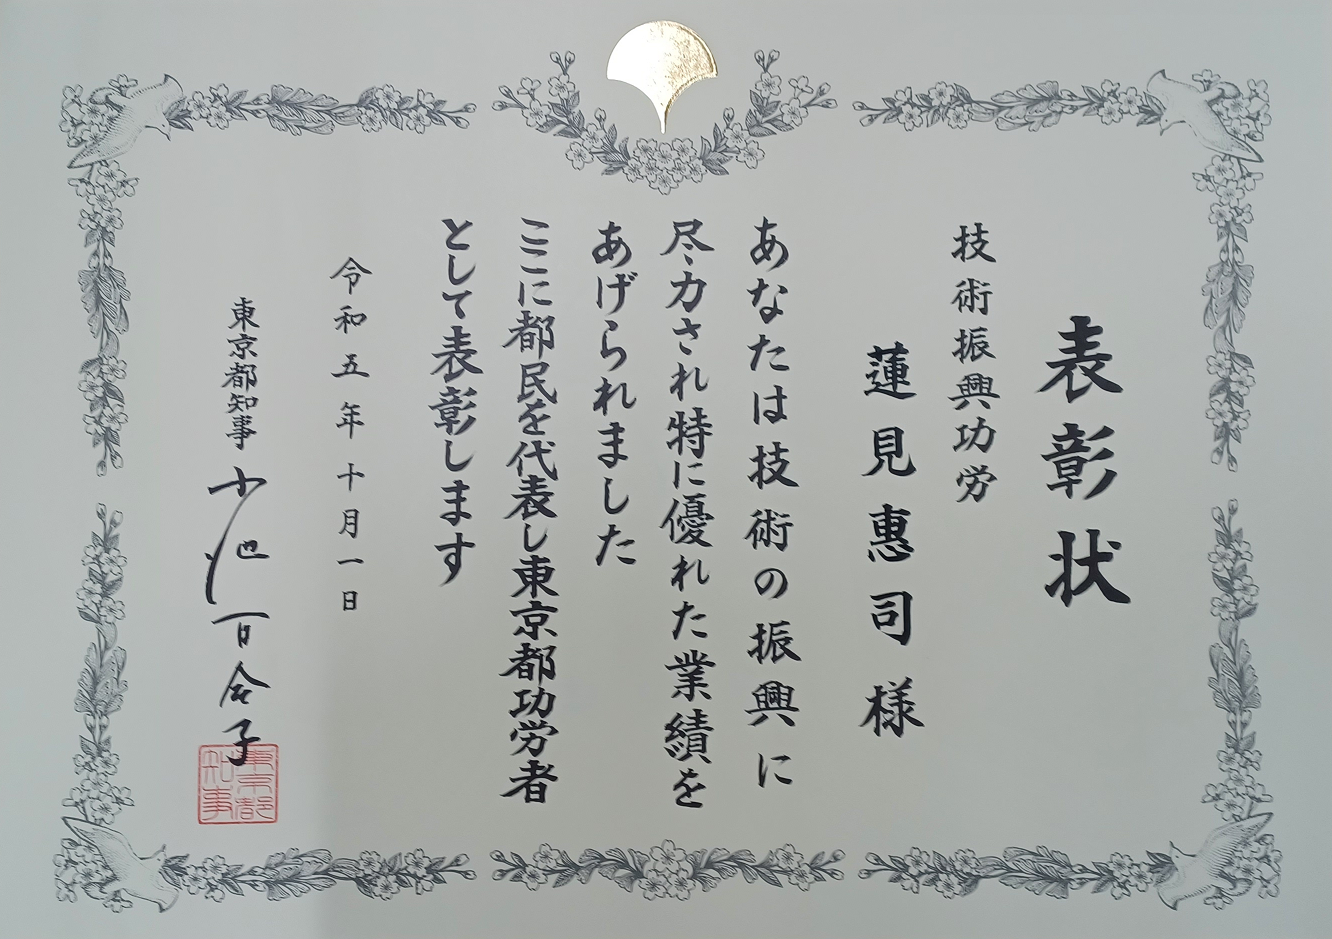 表彰状
技術振興功労
蓮見惠司様
あなたは技術の振興に
尽力され特に優れた業績を
あげられました
ここに都民を代表し東京都功労者
として表彰します
令和五年十月一日
東京都知事 小池百合子
東京都
知事